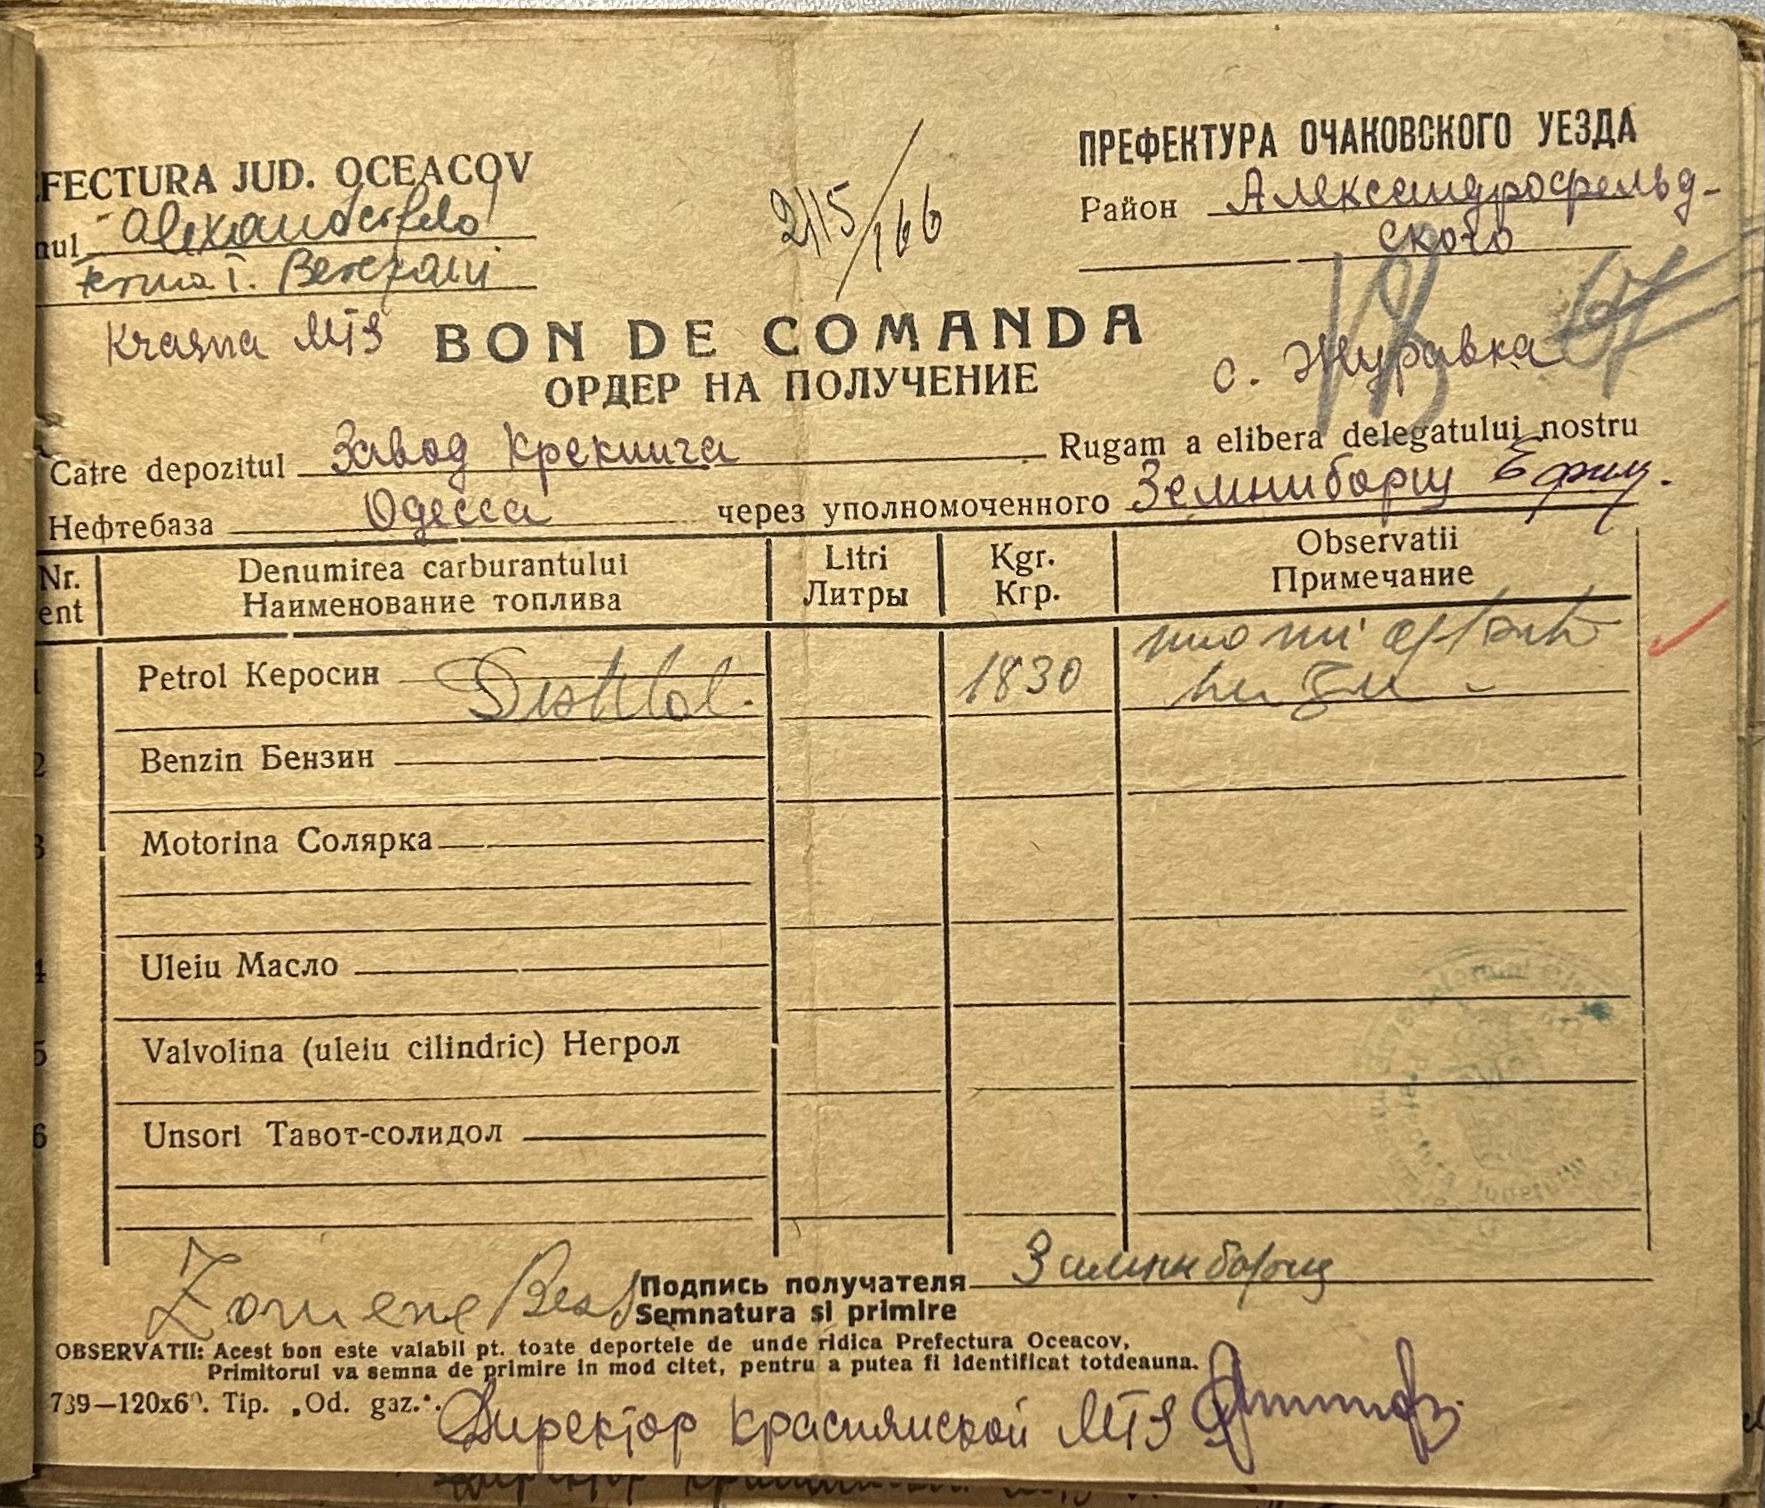 FECTURA JUD. OCEACOV
ПРЕФЕКТУРА ОЧАКОВСКОГО УЕЗДА
nul Alexanderfeld
2115/166
Район Александрофельд-
ского
Ferma I. Berezani
Krasna MTS
BON DE COMANDA
ОРДЕР НА ПОЛУЧЕНИЕ
с. Журавка
Catre depozitul Завод Крекинга
Rugam a elibera delegatului nostru
Нефтебаза Одесса
через уполномоченного Земниборщ Ефим.
Nr.
ent
Denumirea carburantului
Наименование топлива
Litri
Литры
Kgr.
Кгр.
Observatii
Примечание
1 Petrol Керосин Distilat. 1830
2 Benzin Бензин
3 Motorina Солярка
4 Uleiu Масло
5 Valvolina (uleiu cilindric) Негрол
6 Unsori Тавот-солидол
Подпись получателя Зимниборщ
Semnatura si primire
OBSERVATII: Acest bon este valabil pt. toate deportele de unde ridica Prefectura Oceacov,
Primitorul va semna de primire in mod citet, pentru a putea fi identificat totdeauna.
739—120x60. Tip. „Od. gaz.".
Директор Краснянской MTS